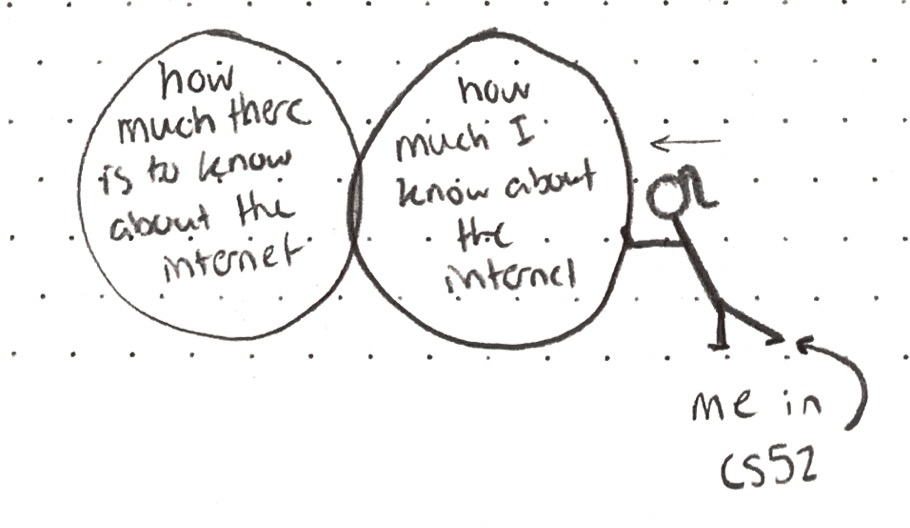 how
much there
is to know
about the
internet
how
much I
know about
the
internet
me in
CS52